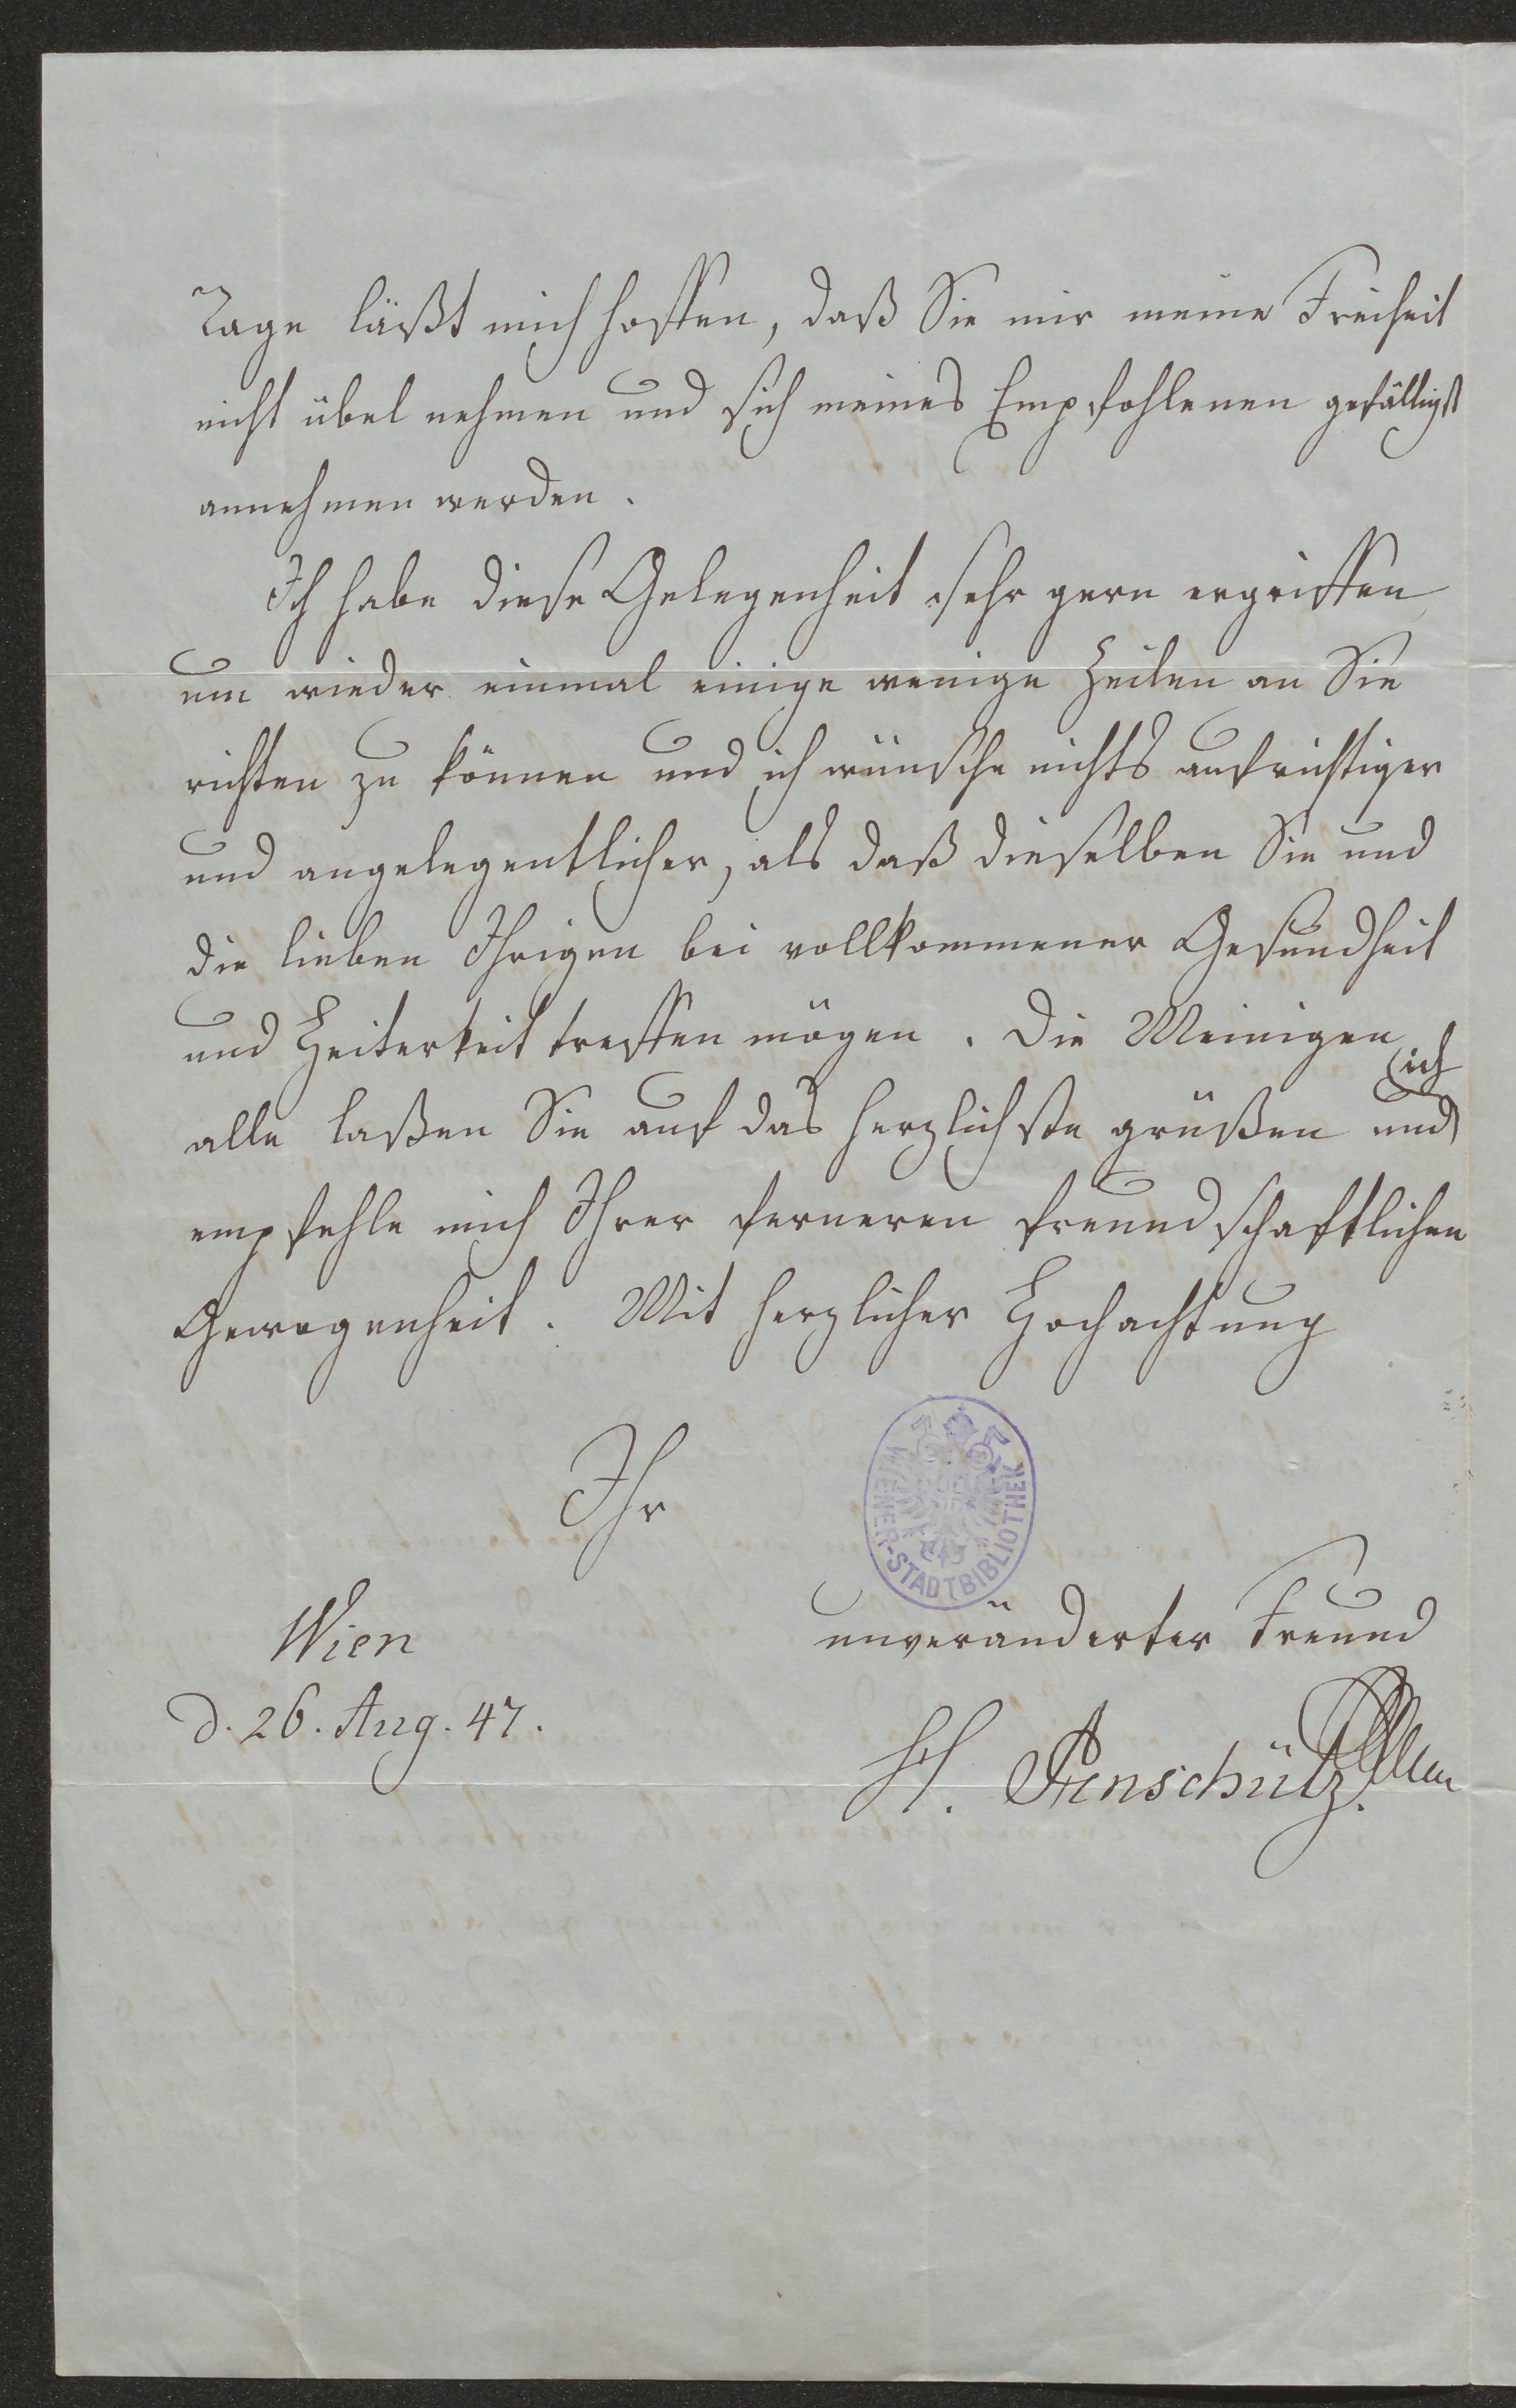 Tage läßt mich hoffen, daß Sie mir meine Freiheit
nicht übel nehmen und sich meines Empfohlenen gefälligst
annehmen werden.
Ich habe diese Gelegenheit sehr gern ergriffen,
um wieder einmal einige wenige Zeilen an Sie
richten zu können und ich wünsche nichts aufrichtiger
und angelegentlicher, als daß dieselben Sie und
die lieben Ihrigen bei vollkommener Gesundheit
und Heiterkeit treffen mögen. Die Meinigen
alle laßen Sie auf das herzlichste grüßen und ich
empfehle mich Ihrer ferneren freundschaftlichen
Gewogenheit. Mit herzlicher Hochachtung
Ihr
WIENER-STADTBIBLIOTHEK
unveränderter Freund
Wien
d. 26. Aug. 47.
H. Anschütz.